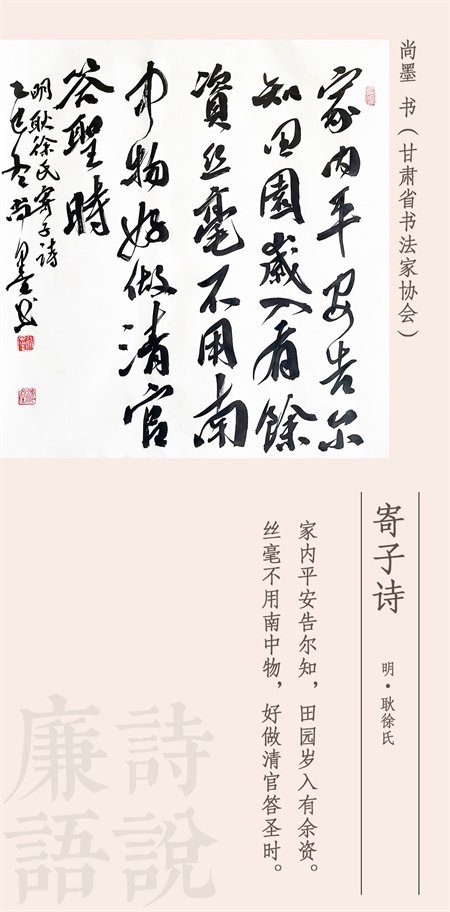 尚墨 书（甘肃省书法家协会）
家内平安告尔
知田園歲入有餘
資丝毫不用南
中物好做清官
答聖時
明耿徐氏寄子詩
乙巳 尚墨书
寄子诗
明·耿徐氏
家内平安告尔知，田园岁入有余资。
丝毫不用南中物，好做清官答圣时。
詩說
廉語